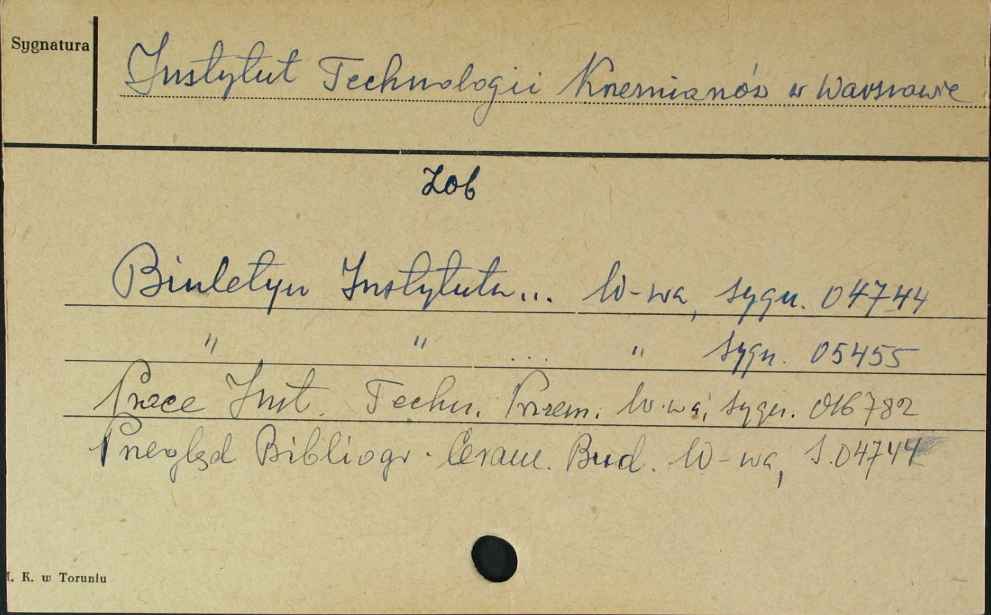 Sygnatura
Instytut Technologii Krzemianów w Warszawie
Zob
Biuletyn Instytutu... W-wa, sygn. 04744
" " ... " sygn. 05455
Prace Inst. Techn. Krzem. W-wa, sygn. 016782
Przegląd Bibliogr. Ceram. Bud. W-wa, S. 04744
I. K. w Toruniu